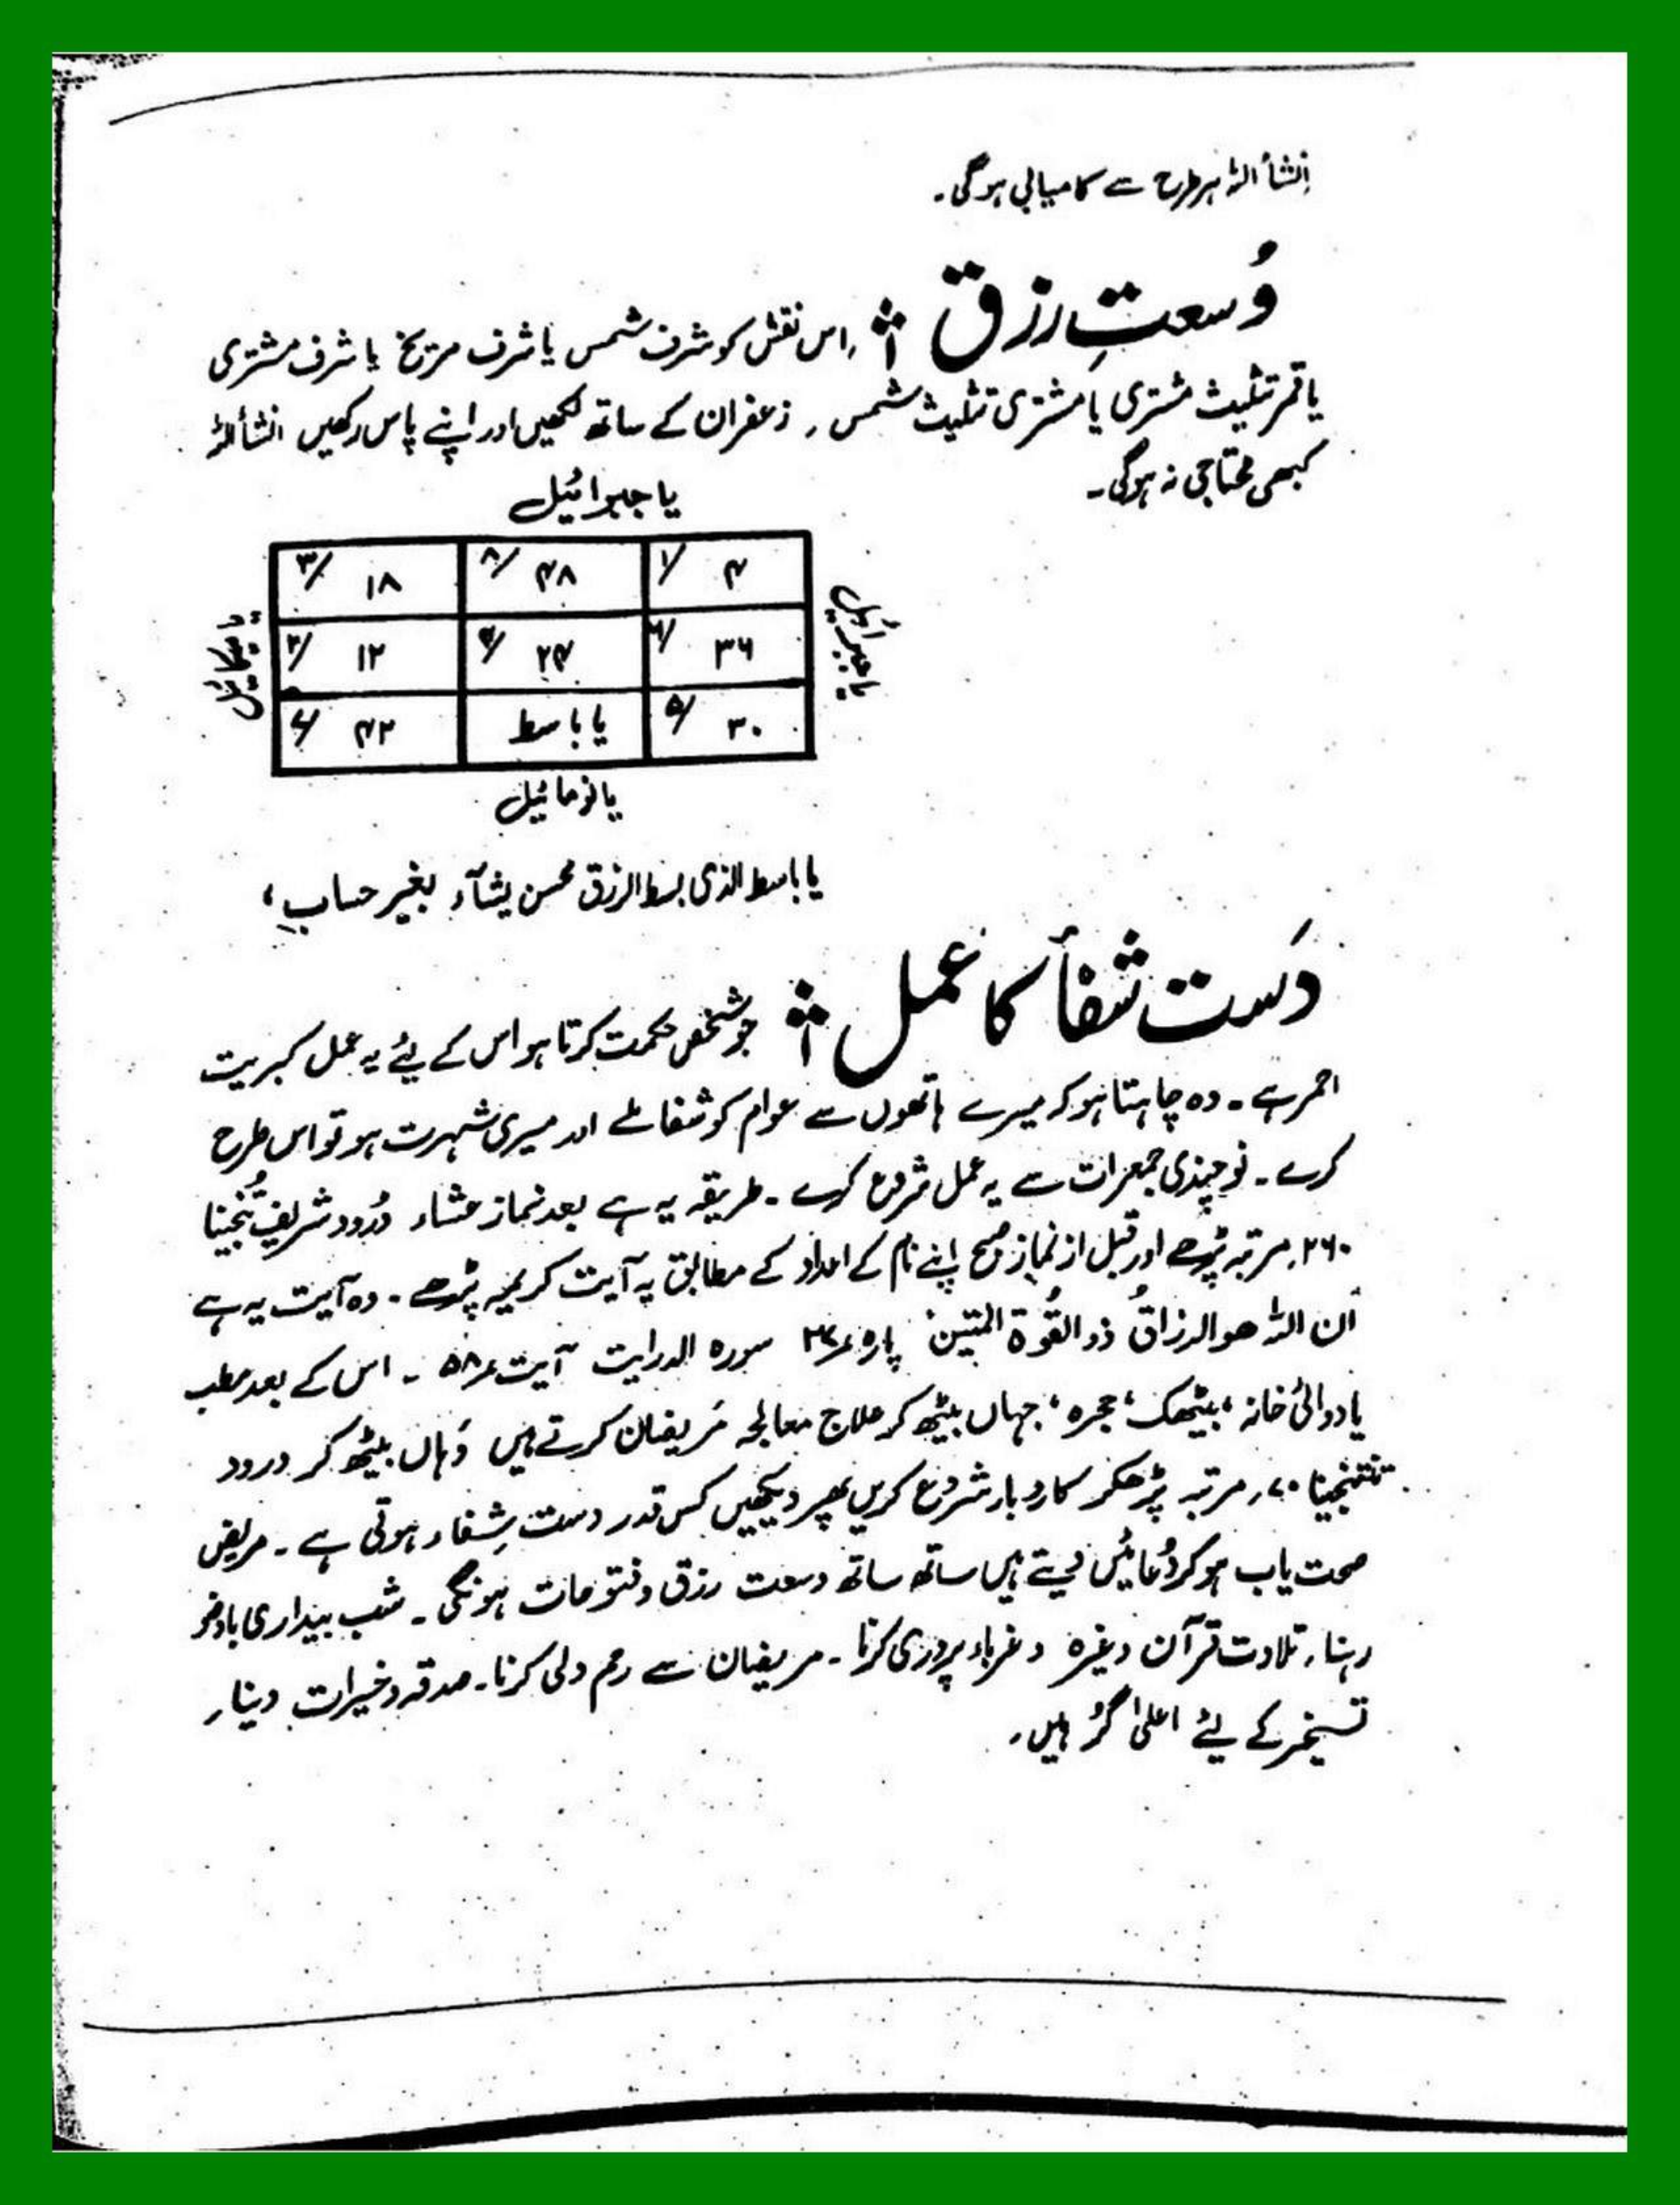 انشأ اللہ ہر طرح سے کامیابی ہوگی۔
وُسعتِ رزق
اس نقش کو شرف شمس یا شرف مریخ یا شرف مشتری
یا قمر تثلیث مشتری یا مشتری تثلیث شمس، زعفران کے ساتھ لکھیں اور اپنے پاس رکھیں انشأ اللہ
کبھی محتاجی نہ ہوگی۔
یا جبرائیل
۳/ ۱۸ ۸/ ۴۸ ۱/ ۴
۲/ ۱۲ ۴/ ۲۴ ۶/ ۳۶
۷/ ۴۲ یا باسط ۵/ ۳۰
یا میکائیل
یا باسط الذی بسط الرزق محسن یشآء بغیر حسابِ،
دَست شفأ کا عمل
جو شخص حکمت کرتا ہو اس کے لئے یہ عمل کبریت
احمر ہے۔ وہ چاہتا ہو کہ میرے ہاتھوں سے عوام کو شفا ملے اور میری شہرت ہو تو اس طرح
کرے۔ نوچندی جمعرات سے یہ عمل شروع کرے۔ طریقہ یہ ہے بعد نماز عشاء دُرود شریف تُنجینا
۲۶۰ مرتبہ پڑھے اور قبل از نماز صبح اپنے نام کے اعداد کے مطابق یہ آیت کریمہ پڑھے۔ وہ آیت یہ ہے
اَن اللہ ھو الرزاقُ ذو القُوۃ المتین پارہ ۲۷ سورہ الدرایت آیت ۵۸ ۔ اس کے بعد مطب
یا دوائی خانہ، بیٹھک، حجرہ، جہاں بیٹھ کر علاج معالجہ مَریضان کرتے ہیں وَہاں بیٹھ کر درود
تنتجینا ۷۰ مرتبہ پڑھکر کاروبار شروع کریں پھر دیکھیں کس قدر دست شِفاء ہوتی ہے۔ مریض
صحت یاب ہو کر دُعائیں دیتے ہیں ساتھ ساتھ وسعت رزق و فتوحات ہونگی۔ شب بیداری با وضو
رہنا، تلاوت قرآن وغیرہ و غرباء پروری کرنا۔ مریضان سے رحم دلی کرنا۔ صدقہ و خیرات دینا،
تسخیر کے لئے اعلیٰ گُر ہیں،